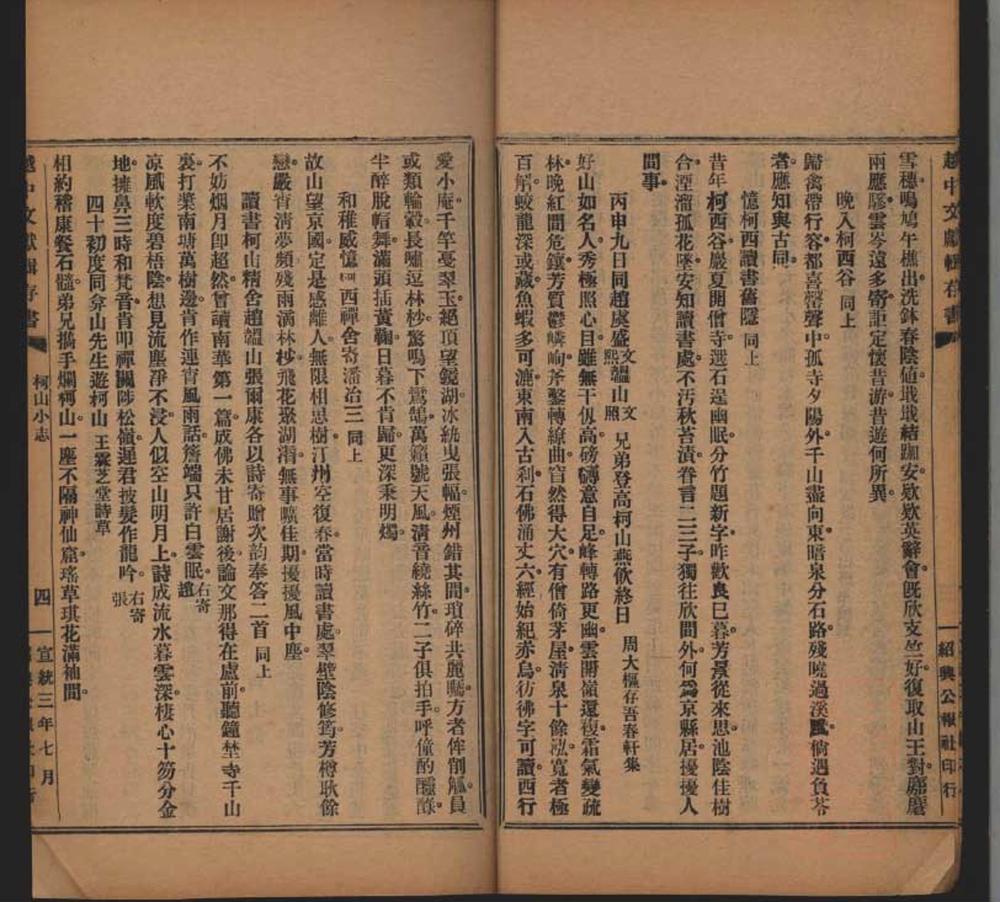 越中文獻輯存書
紹興公報社印行
雪穗鳴鳩午樵出洗鉢春陰値戢戢結跏安欵欵英辭會既欣支竺好復取山王對廊慶
兩應歷雲岑遠多寄詎定懷昔游昔遊何所異
晚入柯西谷 同上
歸禽帶行客都喜磬聲中孤寺夕陽外千山盡向東暗泉分石路殘曉過溪風倘遇負苓
者應知與古同
憶柯西讀書舊隱 同上
昔年柯西谷嚴夏開僧寺選石逞幽眠分竹題新字昨歡良已暮芳景從來思池陰佳樹
合湮溜孤花墜安知讀書處不汚秋苔漬眷言二三子獨往欣間外何爲京縣居擾擾人
間事
丙申九日同趙虞盛文熙韞山文照兄弟登高柯山燕飮終日 周大樞存吾春軒集
好山如名人秀極照心目雖無千仭高磅礴意自足峰轉路更幽雲開嶺還複霜氣變疏
林晚紅間危鑲芳質鬱嶙峋斧鑿轉繚曲窅然得大穴有僧倚茅屋淸泉十餘泓寬者極
百斛蛟龍深或藏魚蝦多可漉東南入古刹石佛涌丈六經始紀赤烏彷彿字可讀西行
愛小庵千竿戞翠玉絕頂望鏡湖冰紈曳張幅煙州錯其間瑣碎共麗矚方者侔削觚員
或類輪轂長嘯逗林杪驚鳴下鸞鵠萬籟號天風淸音繞絲竹二子俱拍手呼僮酌醽醁
半醉脫帽舞滿頭插黃鞠日暮不肯歸更深秉明燭
和稚威憶柯西禪舍寄潘治三 同上
故山望京國定是感離人無限相思樹汀州空復春當時讀書處翠壁陰修筠芳樽耿餘
戀嚴宵淸夢頻殘雨滿林杪飛花聚湖漘無事曠佳期擾擾風中塵
讀書柯山精舍趙韞山張爾康各以詩寄贈次韵奉答二首 同上
不妨烟月卽超然曾讀南華第一篇成佛未甘居謝後論文那得在盧前聽鐘埜寺千山
裏打槳南塘萬樹邊肯作連宵風雨話簷端只許白雲眠右寄趙
凉風軟度碧梧陰想見流塵淨不浸人似空山明月上詩成流水暮雲深棲心十笏分金
地擁鼻三時和梵音肯叩禪關陟松嶺遲君披髮作龍吟右寄張
四十初度同弇山先生遊柯山 王霖芝堂詩草
相約稽康餐石髓弟兄擕手爛柯山一塵不隔神仙窟瑤草琪花滿袖間
越中文獻輯存書
柯山小志
四
宣統三年七月